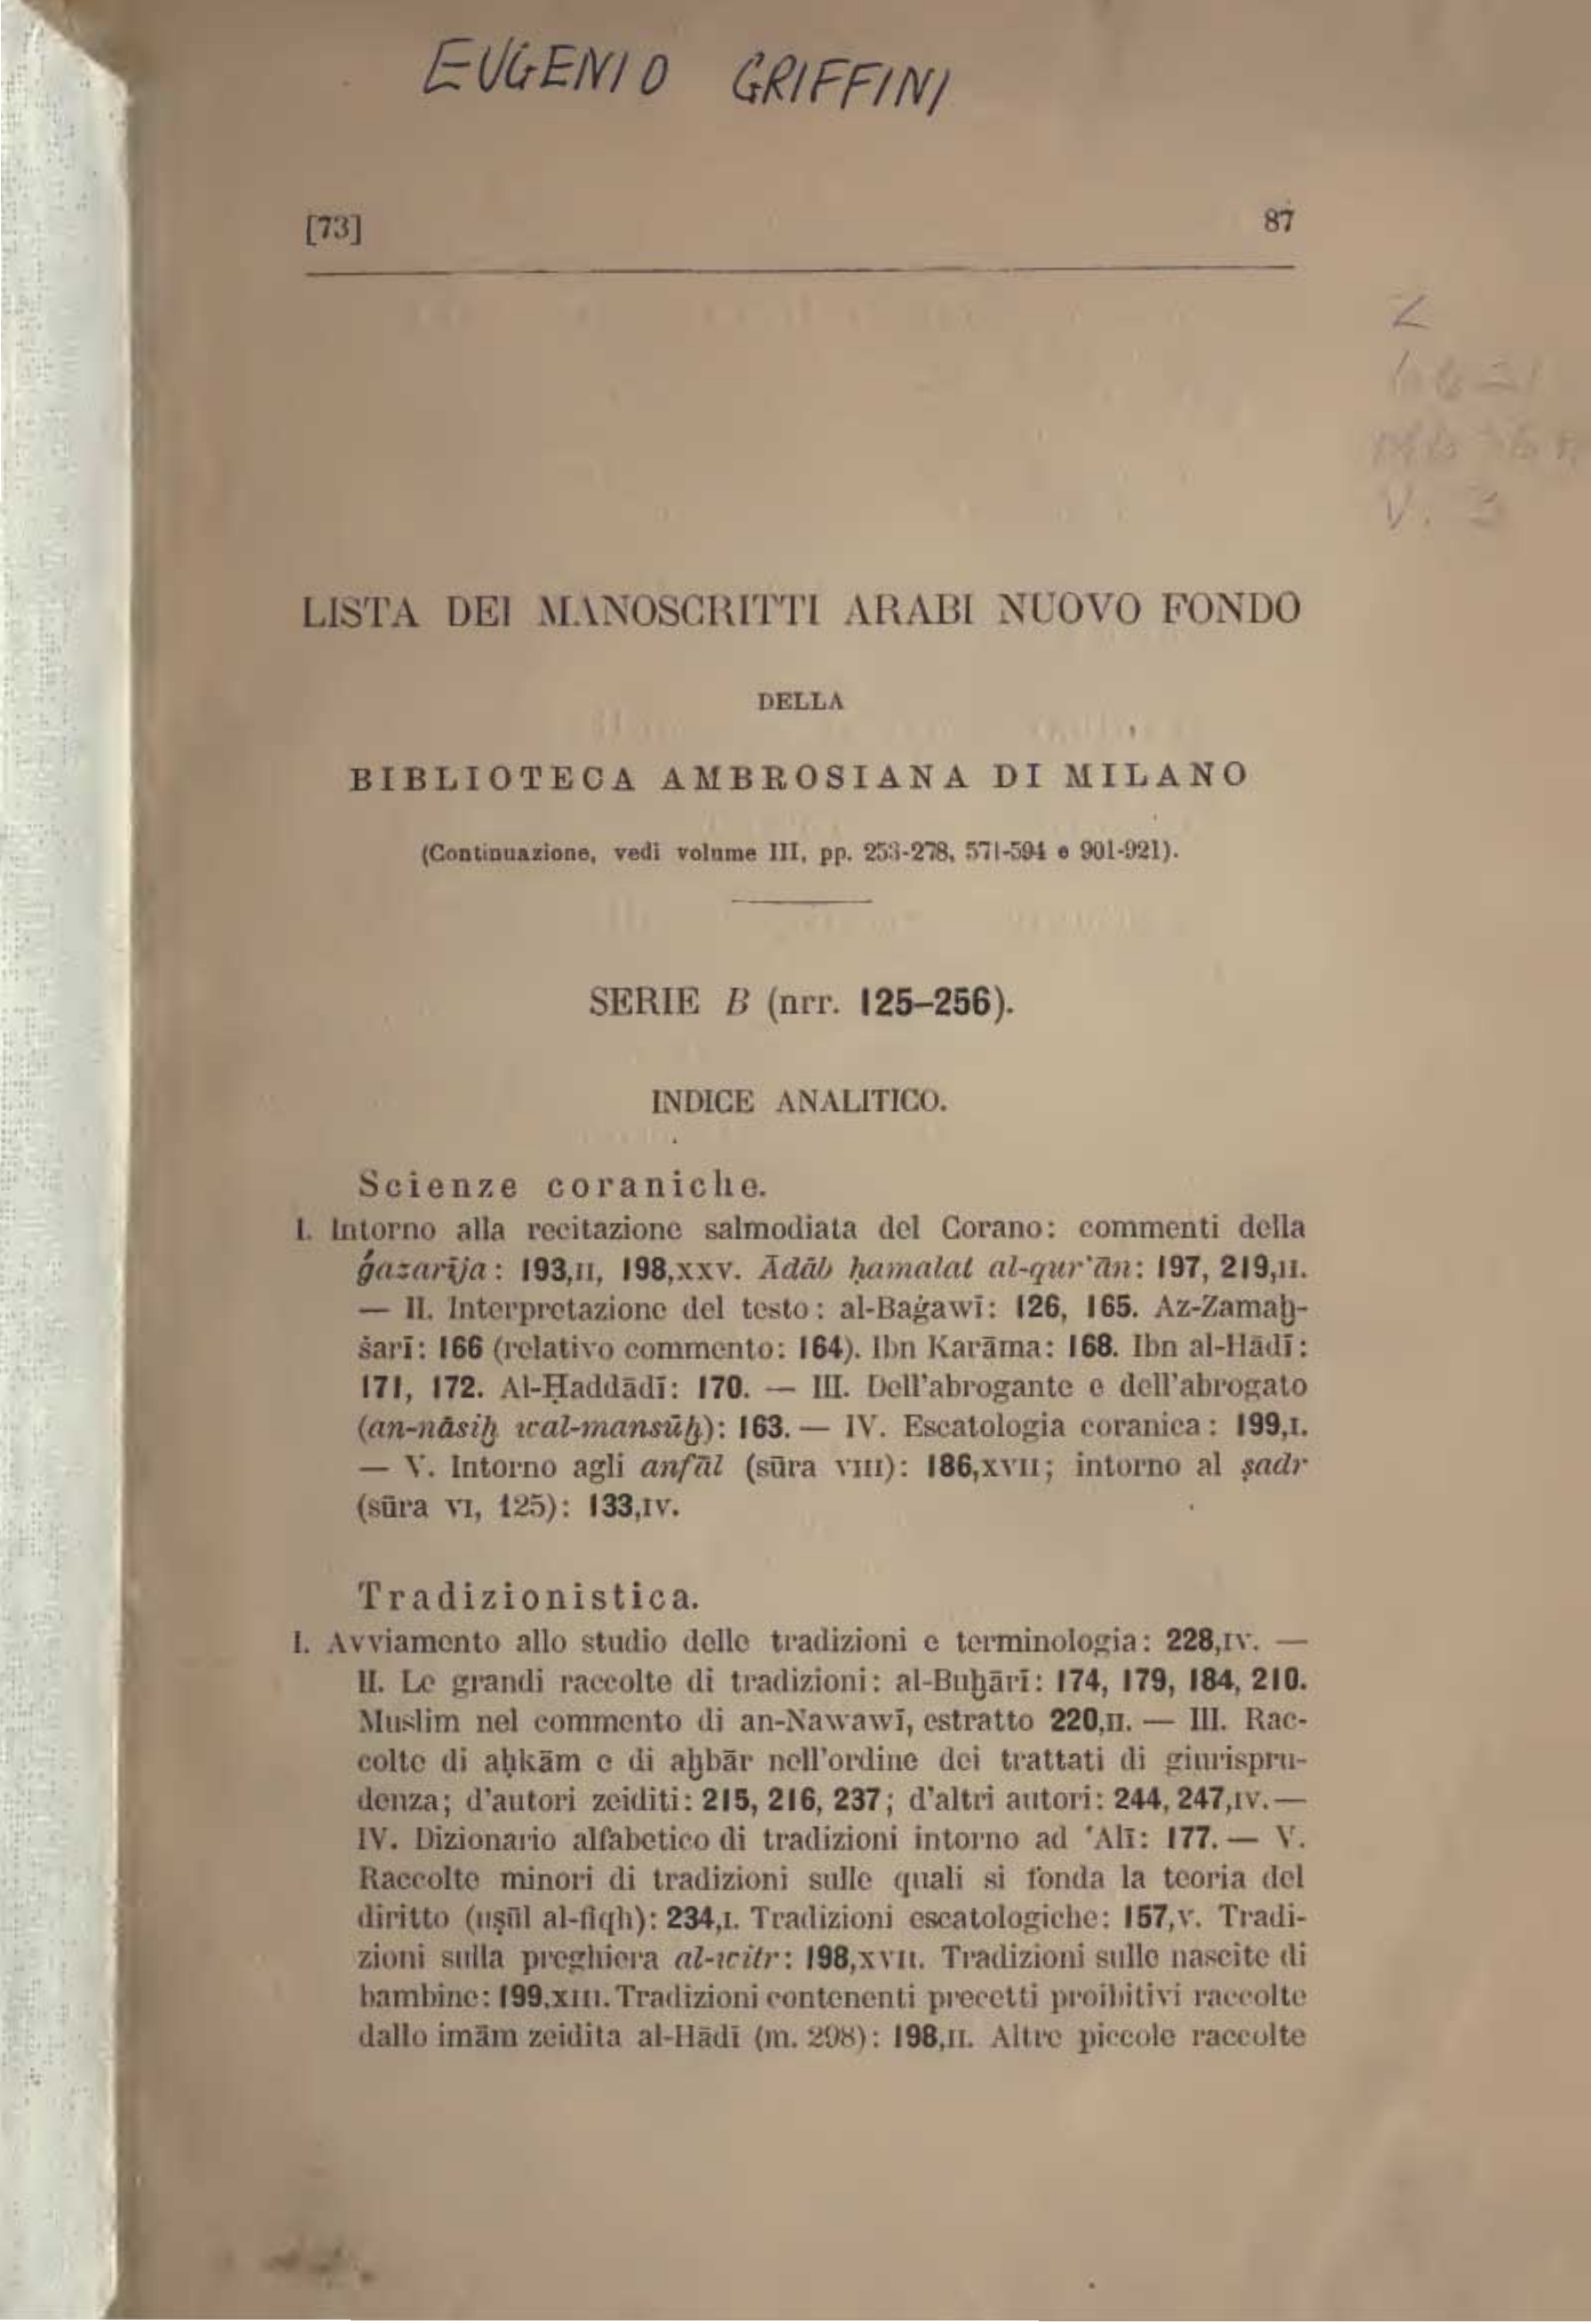 EUGENIO GRIFFINI
[73] 87
Z
V. 3
LISTA DEI MANOSCRITTI ARABI NUOVO FONDO
DELLA
BIBLIOTECA AMBROSIANA DI MILANO
(Continuazione, vedi volume III, pp. 253-278, 571-594 e 901-921).
SERIE B (nrr. 125–256).
INDICE ANALITICO.
Scienze coraniche.
I. Intorno alla recitazione salmodiata del Corano: commenti della
ǵazarīja: 193,II, 198,XXV. Ādāb ḥamalat al-qur'ān: 197, 219,II.
— II. Interpretazione del testo: al-Baġawī: 126, 165. Az-Zamaḫ-
šarī: 166 (relativo commento: 164). Ibn Karāma: 168. Ibn al-Hādī:
171, 172. Al-Ḥaddādī: 170. — III. Dell'abrogante e dell'abrogato
(an-nāsiḫ wal-mansūḫ): 163. — IV. Escatologia coranica: 199,I.
— V. Intorno agli anfāl (sūra VIII): 186,XVII; intorno al ṣadr
(sūra VI, 125): 133,IV.
Tradizionistica.
I. Avviamento allo studio delle tradizioni e terminologia: 228,IV. —
II. Le grandi raccolte di tradizioni: al-Buḫārī: 174, 179, 184, 210.
Muslim nel commento di an-Nawawī, estratto 220,II. — III. Rac-
colte di aḥkām e di aḫbār nell'ordine dei trattati di giurispru-
denza; d'autori zeiditi: 215, 216, 237; d'altri autori: 244, 247,IV. —
IV. Dizionario alfabetico di tradizioni intorno ad ʿAlī: 177. — V.
Raccolte minori di tradizioni sulle quali si fonda la teoria del
diritto (uṣūl al-fiqh): 234,I. Tradizioni escatologiche: 157,V. Tradi-
zioni sulla preghiera al-witr: 198,XVII. Tradizioni sulle nascite di
bambine: 199,XIII. Tradizioni contenenti precetti proibitivi raccolte
dallo imām zeidita al-Hādī (m. 298): 198,II. Altre piccole raccolte